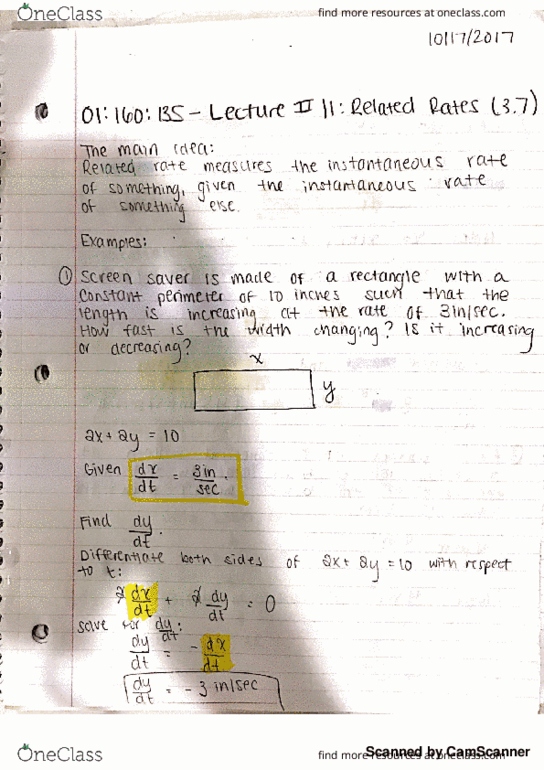 OneClass
find more resources at oneclass.com
10/17/2017
01:160:135 - Lecture II 11: Related Rates (3.7)
The main idea:
Related rate measures the instantaneous rate
of something, given the instantaneous rate
of something else.
Examples:
① Screen saver is made of a rectangle with a
constant perimeter of 10 inches such that the
length is increasing at the rate of 3in/sec.
How fast is the width changing? Is it increasing
or decreasing?
x
y
2x + 2y = 10
Given dx/dt = 3in/sec.
Find dy/dt.
Differentiate both sides of 2x + 2y = 10 with respect
to t:
2 dx/dt + 2 dy/dt = 0
solve for dy/dt:
dy/dt = - dx/dt
dy/dt = - 3 in/sec
OneClass
find more resources at oneclass.com
Scanned by CamScanner